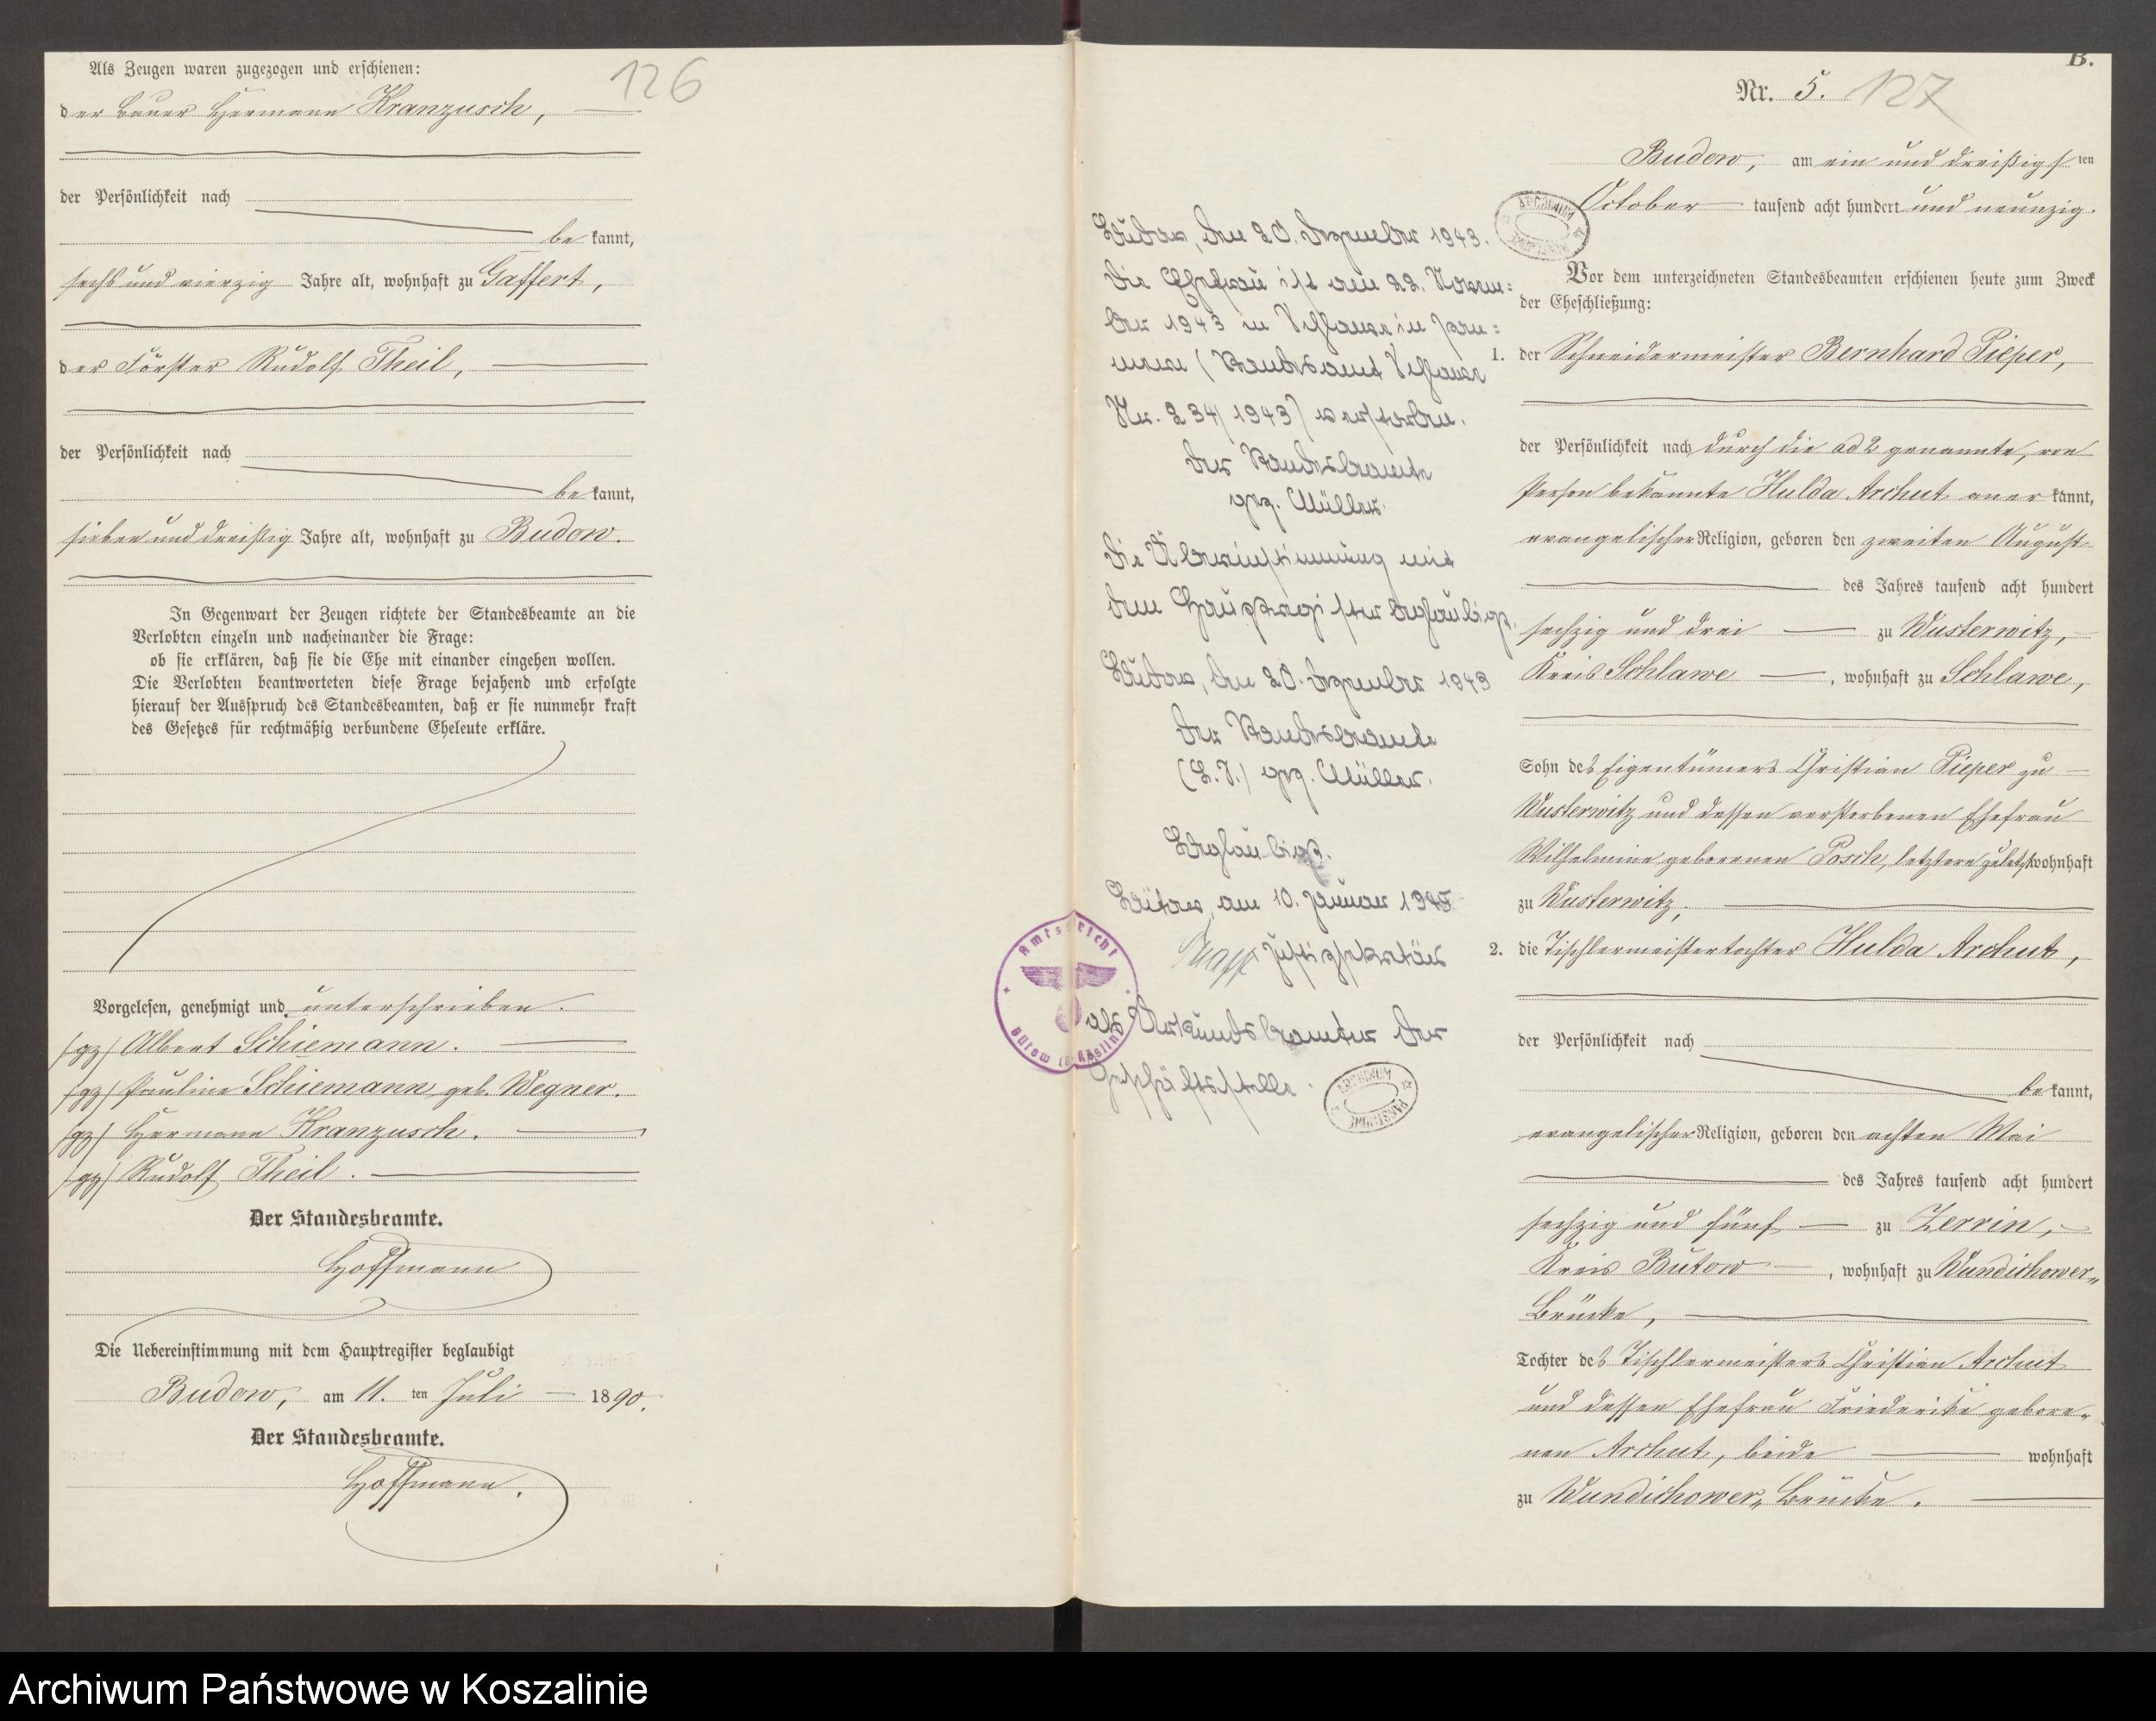 Als Zeugen waren zugezogen und erschienen:
126
der Bauer Hermann Kranzusch,
der Persönlichkeit nach
be kannt,
sechs und vierzig Jahre alt, wohnhaft zu Gaffert,
der Förster Rudolf Theil,
der Persönlichkeit nach
be kannt,
sieben und dreißig Jahre alt, wohnhaft zu Budow.
In Gegenwart der Zeugen richtete der Standesbeamte an die
Verlobten einzeln und nacheinander die Frage:
ob sie erklären, daß sie die Ehe mit einander eingehen wollen.
Die Verlobten beantworteten diese Frage bejahend und erfolgte
hierauf der Ausspruch des Standesbeamten, daß er sie nunmehr kraft
des Gesetzes für rechtmäßig verbundene Eheleute erkläre.
Vorgelesen, genehmigt und unterschrieben.
/gz/ Albert Schiemann.
/gz/ Pauline Schiemann, geb. Wegner.
/gz/ Hermann Kranzusch.
/gz/ Rudolf Theil.
Der Standesbeamte.
Hoffmann
Die Uebereinstimmung mit dem Hauptregister beglaubigt
Budow, am 11. ten Juli 1890.
Der Standesbeamte.
Hoffmann.
Bütow, den 20. Dezember 1943.
Die Ehefrau ist am 22. Novem=
ber 1943 in Schlawe in Pom=
mern (Standesamt Schlawe
Nr. 234/1943) verstorben.
Der Standesbeamte
gez. Müller.
Die Übereinstimmung mit
dem Hauptregister beglaubigt.
Bütow, den 20. Dezember 1943
Der Standesbeamte
(L.S.) gez. Müller.
Beglaubigt.
Bütow, am 10. Januar 1945
Justizsekretär
als Urkundsbeamter der
Geschäftsstelle.
Amtsgericht
Bütow
ARCHIWUM
PAŃSTWOWE
B.
Nr. 5. 127
Budow, am ein und dreißigs ten
October tausend acht hundert und neunzig.
ARCHIWUM
Vor dem unterzeichneten Standesbeamten erschienen heute zum Zweck
der Eheschließung:
1. der Schneidermeister Bernhard Pieper,
der Persönlichkeit nach durch die ad 2 genannte, von
Person bekannte Hulda Archut aner kannt,
evangelischer Religion, geboren den zweiten August
des Jahres tausend acht hundert
sechzig und drei zu Wusterwitz,
Kreis Schlawe, wohnhaft zu Schlawe,
Sohn des Eigentümers Christian Pieper zu
Wusterwitz und dessen verstorbenen Ehefrau
Wilhelmine geborenen Posch, letztere zuletzt wohnhaft
zu Wusterwitz,
2. die Tischlermeistertochter Hulda Archut,
der Persönlichkeit nach
be kannt,
evangelischer Religion, geboren den achten Mai
des Jahres tausend acht hundert
sechzig und fünf zu Zerrin,
Kreis Bütow, wohnhaft zu Wundichower„
Brücke,
Tochter des Tischlermeisters Christian Archut
und dessen Ehefrau Friederike gebore„
nen Archut, beide wohnhaft
zu Wundichower„ Brücke.
Archiwum Państwowe w Koszalinie